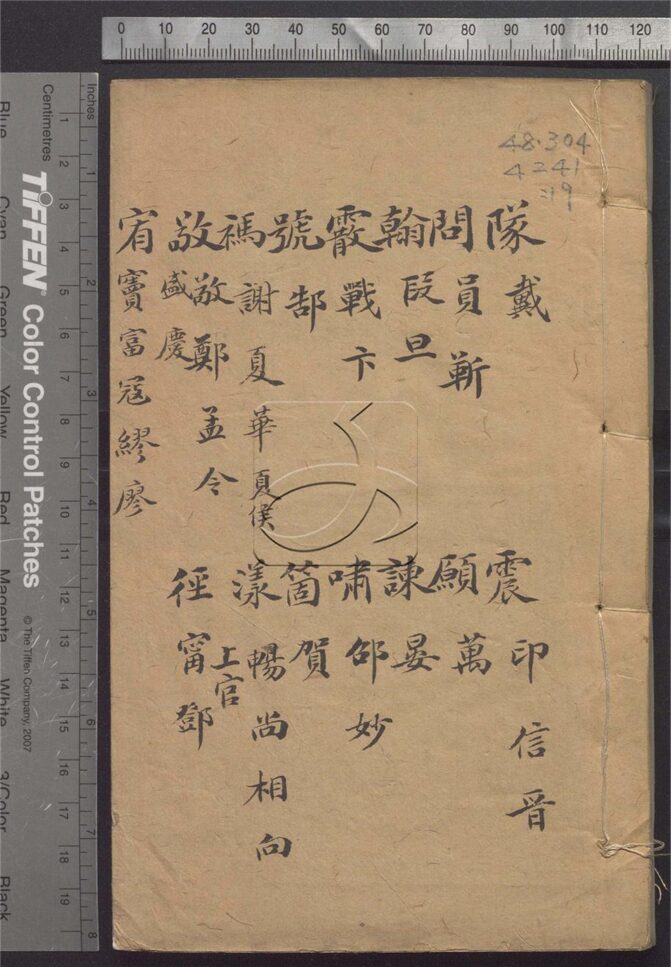 48·304
4241
:19
隊 戴
震 印 信 晉
問 員 靳
願 萬
翰 段 旦
諫 晏
霰 戰 卞
嘯 邵 妙
號 郜
箇 賀
禡 謝 夏 華 夏侯
漾 暢 尚 相 向
上官
敬 敬 鄭 孟 令
盛 慶
徑 甯 鄧
宥 竇 富 寇 繆 廖
0 10 20 30 40 50 60 70 80 90 100 110 120
Inches
1 2 3 4 5 6 7 8
Centimetres
1 2 3 4 5 6 7 8 9 10 11 12 13 14 15 16 17 18 19
TIFFEN® Color Control Patches
© The Tiffen Company, 2007
Blue Cyan Green Yellow Red Magenta White 3/Color Black